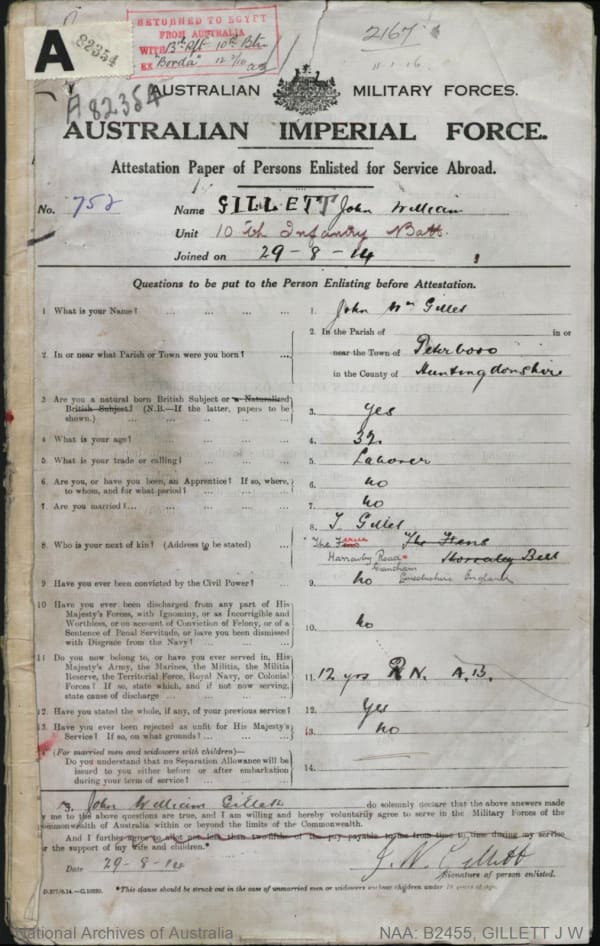 A 82354
RETURNED TO EGYPT
FROM AUSTRALIA
WITH 13th Rft 10th Btn
EX "Borda" 12
2167
11.1.16
A82354
AUSTRALIAN MILITARY FORCES.
AUSTRALIAN IMPERIAL FORCE.
Attestation Paper of Persons Enlisted for Service Abroad.
No. 752 Name GILLETT John William
Unit 10th Infantry Batt.
Joined on 29-8-14
Questions to be put to the Person Enlisting before Attestation.
1 What is your Name? ... ... ... ... 1. John Wm Gillet
2. In the Parish of in or
2. In or near what Parish or Town were you born? ... near the Town of Peterboro
in the County of Huntingdonshire
3 Are you a natural born British Subject or a Naturalized
British Subject? (N.B.—If the latter, papers to be
shown.) ... ... ... ... 3. Yes
4 What is your age? ... ... ... ... 4. 32
5. What is your trade or calling? ... ... ... 5. Laborer
6. Are you, or have you been, an Apprentice? If so, where,
to whom, and for what period? ... ... ... 6. no
7. Are you married?... ... ... ... ... 7. no
8. Who is your next of kin? (Address to be stated) ... 8. J Gillet
The Firs
Harrowby Road
Grantham
Lincolnshire England
9. Have you ever been convicted by the Civil Power? ... 9. no
10 Have you ever been discharged from any part of His
Majesty's Forces, with Ignominy, or as Incorrigible and
Worthless, or on account of Conviction of Felony, or of a
Sentence of Penal Servitude, or have you been dismissed
with Disgrace from the Navy? ... ... ... 10. no
11 Do you now belong to, or have you ever served in, His
Majesty's Army, the Marines, the Militia, the Militia
Reserve, the Territorial Force, Royal Navy, or Colonial
Forces? If so, state which, and if not now serving,
state cause of discharge ... ... ... 11. 12 yrs R.N. A.B.
12. Have you stated the whole, if any, of your previous service? 12. Yes
13. Have you ever been rejected as unfit for His Majesty's
Service? If so, on what grounds? ... ... ... 13. no
(For married men and widowers with children)—
Do you understand that no Separation Allowance will be
issued to you either before or after embarkation
during your term of service? ... ... ... 14.
John William Gillett do solemnly declare that the above answers made
by me to the above questions are true, and I am willing and hereby voluntarily agree to serve in the Military Forces of the
Commonwealth of Australia within or beyond the limits of the Commonwealth.
And I further agree to allot not less than two-fifths of the pay payable to me from time to time during my service
for the support of my wife and children.*
Date 29-8-14 J. W. Gillett
Signature of person enlisted.
D.277/8.14.—C.10929. *This clause should be struck out in the case of unmarried men or widowers without children under 18 years of age.
National Archives of Australia NAA: B2455, GILLETT J W